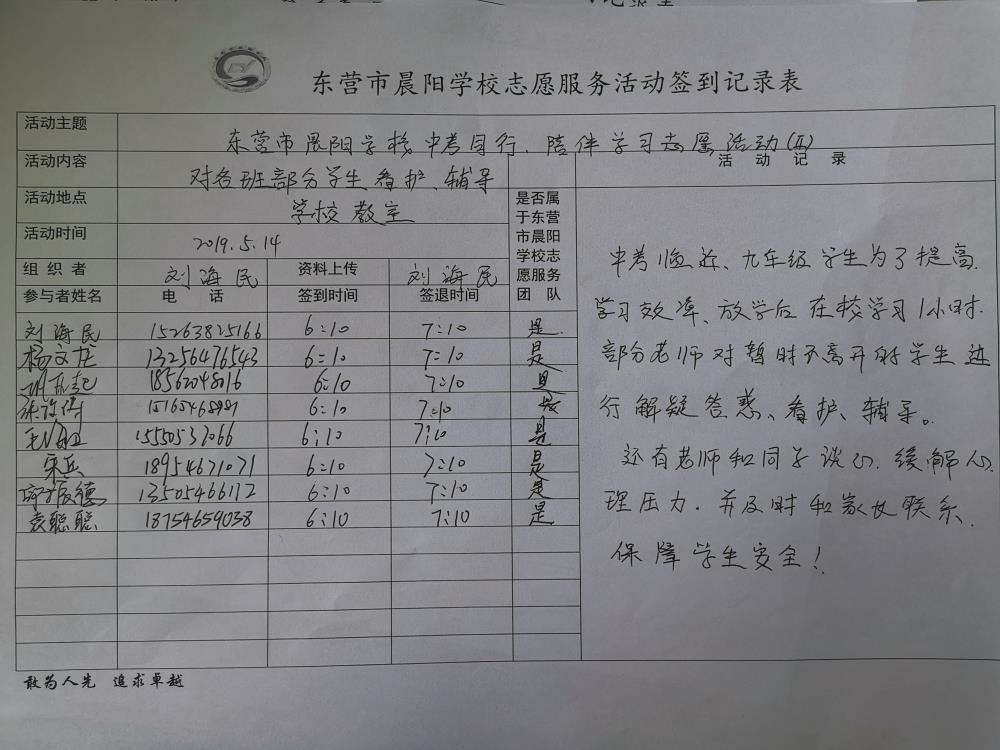 东营市晨阳学校志愿服务活动签到记录表
活动主题 东营市晨阳学校中考同行、陪伴学习志愿活动(五)
活动内容 对各班部分学生看护、辅导 活 动 记 录
活动地点 学校教室
活动时间 2019.5.14
组 织 者 刘海民 资料上传 刘海民
参与者姓名 电 话 签到时间 签退时间
是否属
于东营
市晨阳
学校志
愿服务
团 队
刘海民 15263825166 6:10 7:10 是
杨文龙 13256476543 6:10 7:10 是
18562048016 6:10 7:10 是
6:10 7:10 是
15550537066 6:10 7:10 是
宋兵 18954671071 6:10 7:10 是
13505466112 6:10 7:10 是
袁聪聪 18754659038 6:10 7:10 是
中考临近、九年级学生为了提高
学习效率、放学后在校学习1小时.
部分老师对暂时不离开的学生进
行解疑答惑、看护、辅导。
还有老师和同学谈心、缓解心
理压力.并及时和家长联系.
保障学生安全!
敢为人先 追求卓越